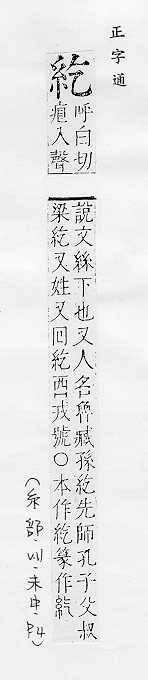 正字通
紇
呼臼切
疽入聲
說文絲下也又人名魯臧孫紇先師孔子父叔
梁紇又姓又回紇西戎號○本作紇篆作䊠